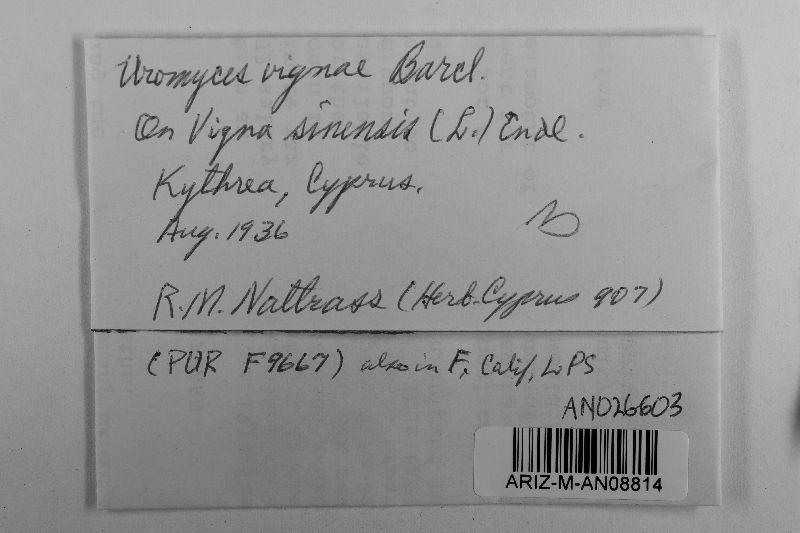 Uromyces vignae Barcl.
On Vigna sinensis (L.) Endl.
Kythrea, Cyprus.
Aug. 1936
R.M. Nattrass (Herb. Cyprus 907)
(PUR F9667) also in F, Calif, L, PS
AN026603
ARIZ-M-AN08814